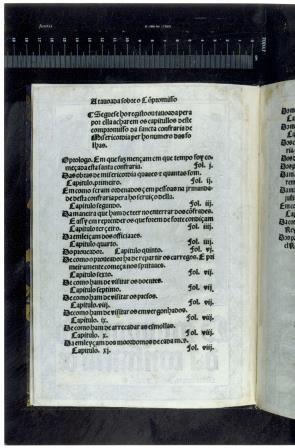 A tauoada sobre o Cõpromisso
¶ Seguese ho registo ou tauoada pera
por ella acharem os capitullos deste
compromisso da sancta confraria de
Misericordia per ho numero das fo
lhas.
O prologo. Em que faz mençam em que tempo foy co
meçada esta santa confraria. fol. j.
Das obras de misericordia quaes e quantas som.
Capitulo. primeiro. fol. ij.
Em como seram ordenados çem pessoas na jrmanda
de desta confraria pera ho seruiço della.
Capitulo segundo. fol. iij.
Da maneira que ham de teer no enterrar dos cõfrades.
E assy em repender os que forem de forte condiçam
Capitulo terçeiro. fol. iij.
Da emleiçam dos officiaaes.
Capitulo quarto. fol. iij.
Do proueador. Capitulo quinto. fol. vj.
Em como o proueador ha de repartir os carregos. E pri
meiramente começa nos spritaaes.
Capitulo sexto. fol. vij.
De como ham de visitar os doentes.
Capitulo septimo. fol. vij
De como ham de visitar os presos.
Capitulo. viij. fol. vij.
De como ham de visitar os envergonhados.
Capitulo. ix. fol. viij.
De como ham de arrecadar as esmollas.
Capitulo. x. fol. viij.
Da emleyçam dos moordomos de cada mes.
Capitulo. xj. fol. viij.